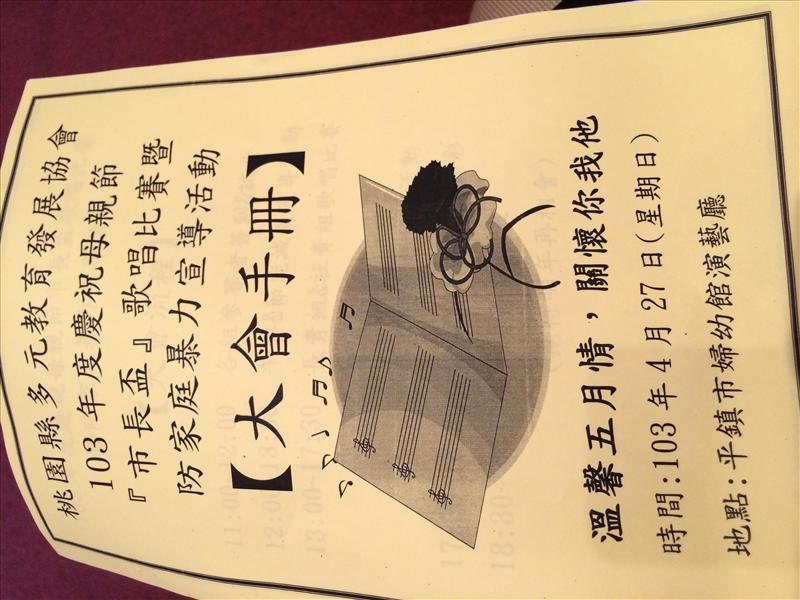 桃園縣多元教育發展協會
103年度慶祝母親節
『市長盃』歌唱比賽暨
防家庭暴力宣導活動
【大會手冊】
溫馨五月情，關懷你我他
時間:103年4月27日(星期日)
地點:平鎮市婦幼館演藝廳